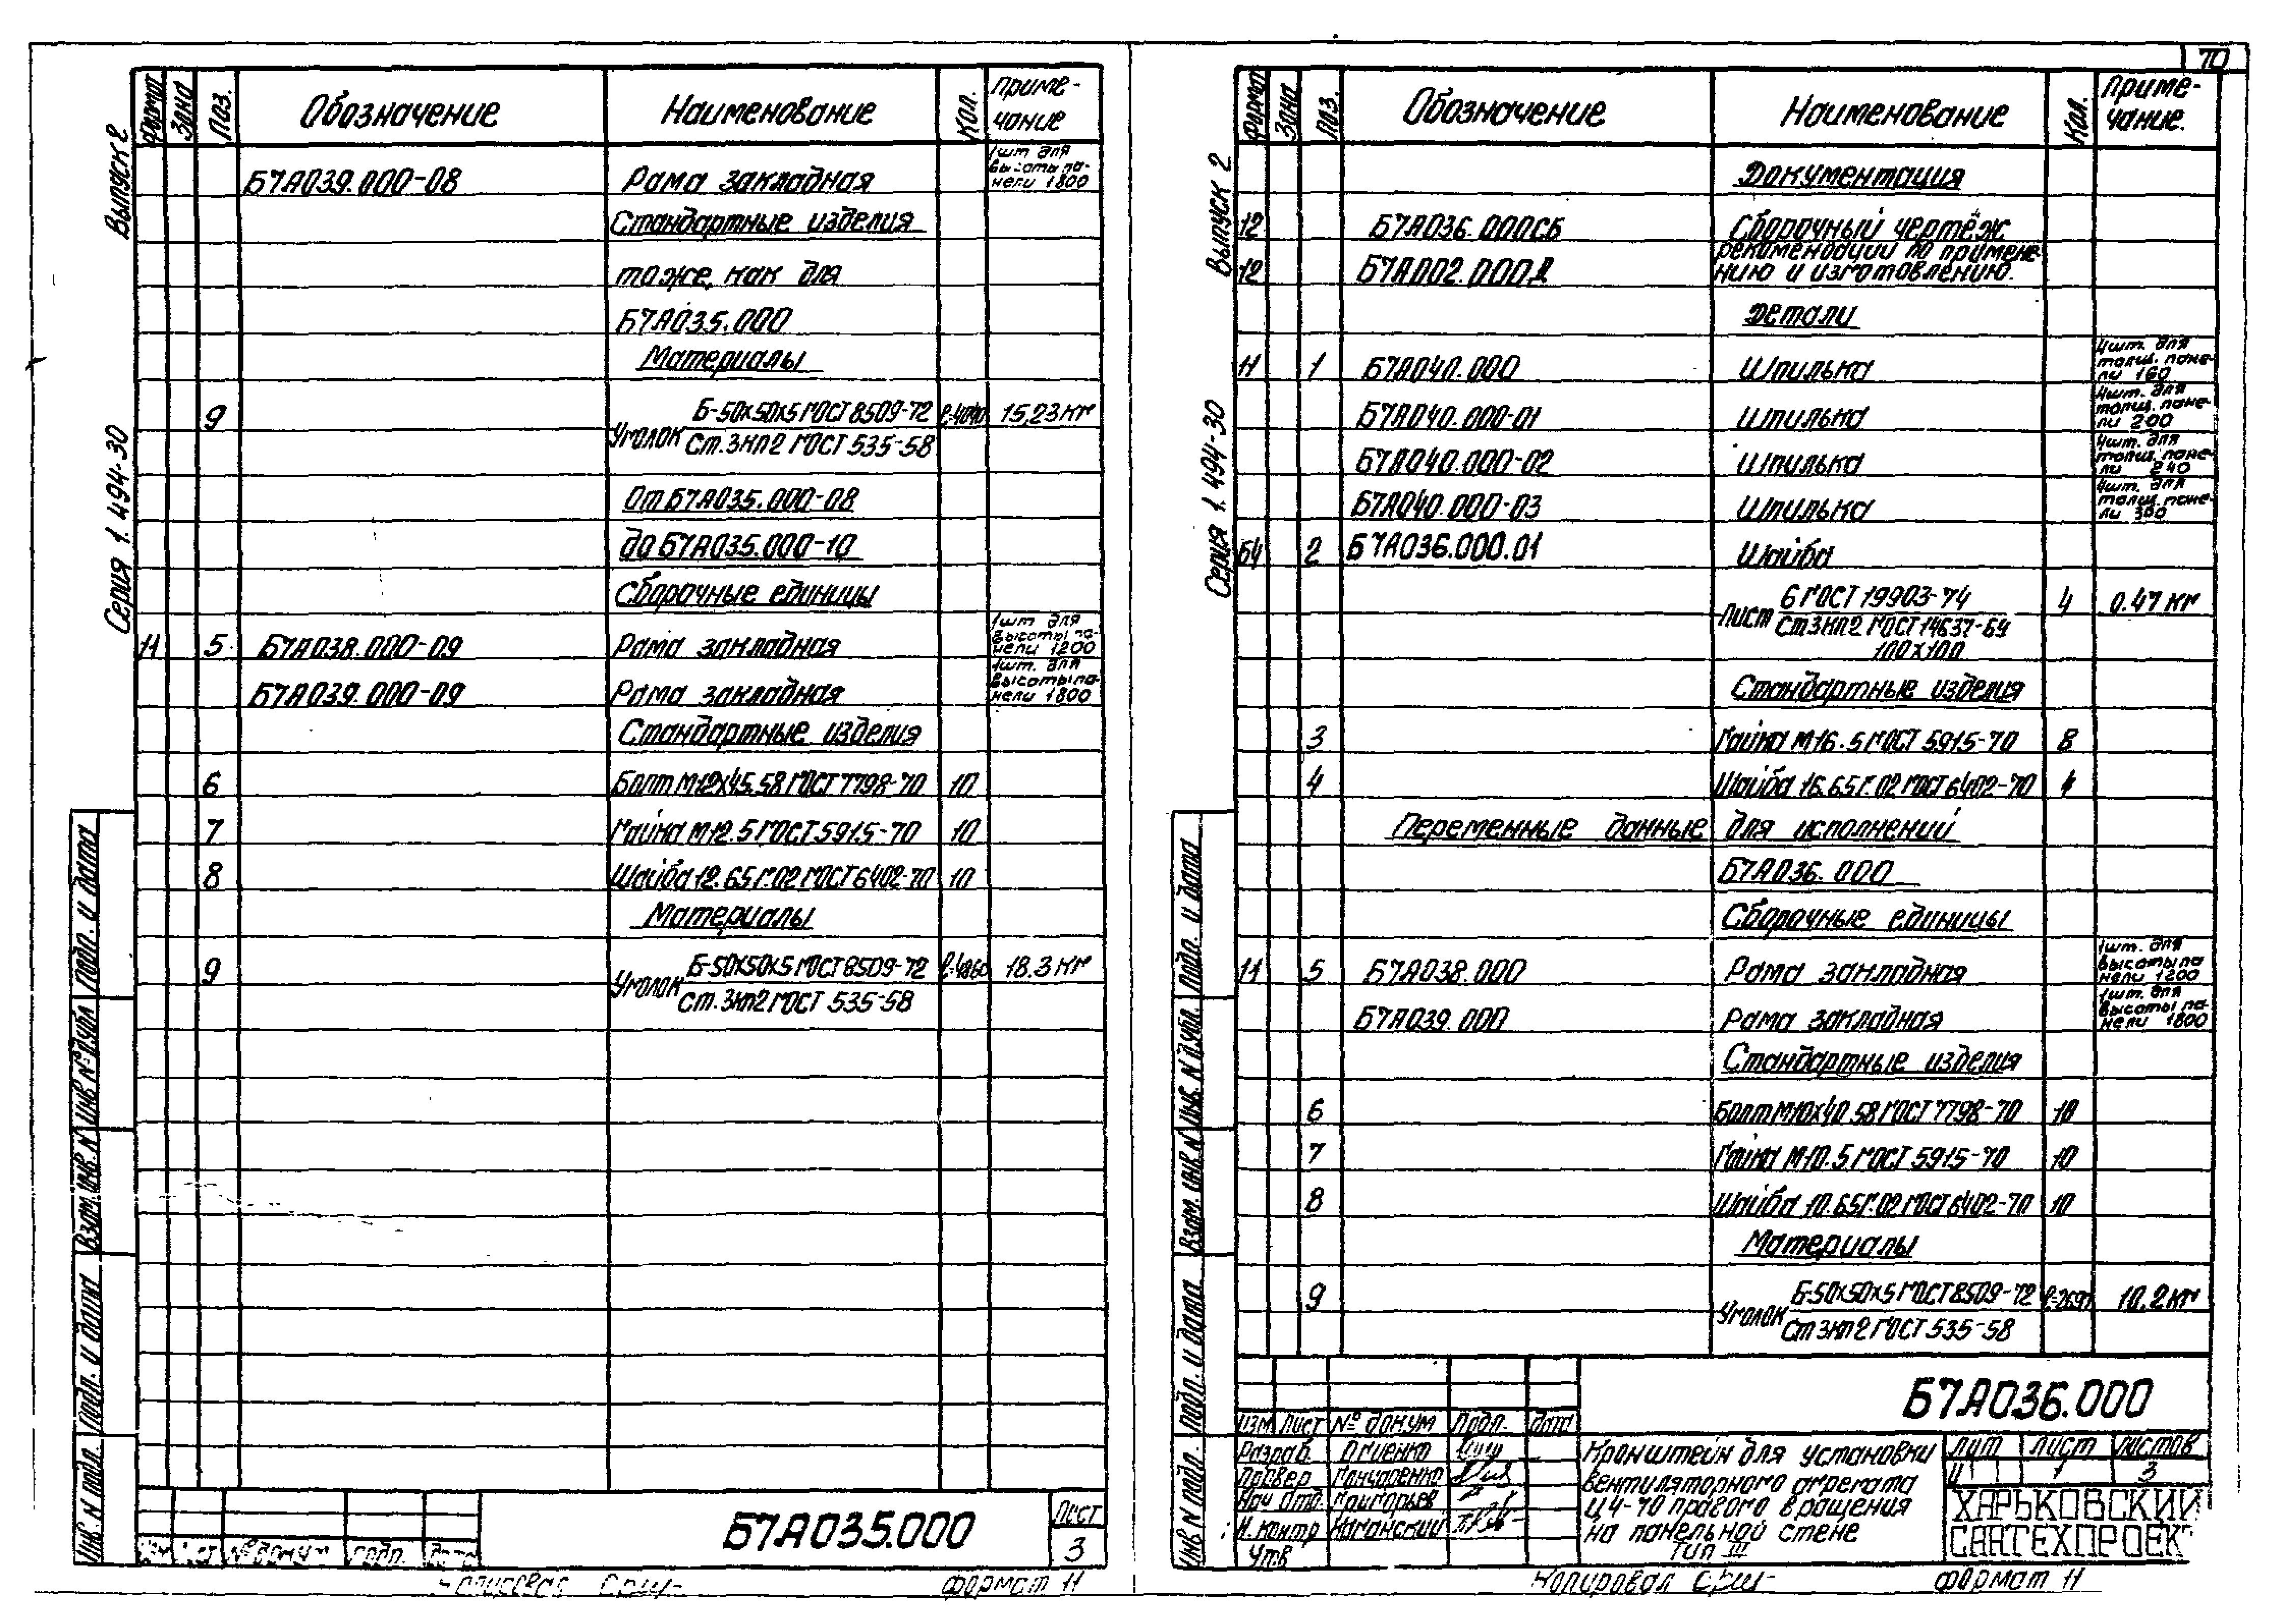 70
Выпуск 2
Серия 1.494-30
Формат Зона Поз. Обозначение Наименование Кол. Приме-
чание
Б7А039.000-08 Рама закладная 1шт для высоты па-нели 1800
Стандартные изделия
тоже, как для
Б7А035.000
Материалы
9 Уголок Б-50х50х5 ГОСТ 8509-72 15,23 кг
Ст.3кп2 ГОСТ 535-58
От Б7А035.000-08
до Б7А035.000-10
Сборочные единицы
11 5 Б7А038.000-09 Рама закладная 1шт для высоты па-нели 1200
Б7А039.000-09 Рама закладная 1шт. для высоты па-нели 1800
Стандартные изделия
6 Болт М12х45.58 ГОСТ 7798-70 10
7 Гайка М12.5 ГОСТ 5915-70 10
8 Шайба 12.65Г.02 ГОСТ 6402-70 10
Материалы
9 Уголок Б-50х50х5 ГОСТ 8509-72 ℓ=4860 18.3 кг
Ст.3кп2 ГОСТ 535-58
Инв. N подл. Подп. и дата Взам. инв. N Инв. № дубл Подп. и дата
Б7А035.000
Лист
3
Формат 11
Выпуск 2
Серия 1.494-30
Формат Зона Поз. Обозначение Наименование Кол. Приме-
чание.
Документация
12 Б7А036.000СБ Сборочный чертёж
12 Б7А002.000Д рекомендации по примене-
нию и изготовлению.
Детали
11 1 Б7А040.000 Шпилька 4шт. для толщ. пане-ли 160
Б7А040.000-01 Шпилька 4шт. для толщ. пане-ли 200
Б7А040.000-02 Шпилька 4шт. для толщ. пане-ли 240
Б7А040.000-03 Шпилька 4шт. для толщ. пане-ли 300
Б4 2 Б7А036.000.01 Шайба
Лист 6 ГОСТ 19903-74 4 0.47 кг
Ст3кп2 ГОСТ 14637-69
100х100
Стандартные изделия
3 Гайка М16.5 ГОСТ 5915-70 8
4 Шайба 16.65Г.02 ГОСТ 6402-70 4
Переменные данные для исполнений
Б7А036.000
Сборочные единицы
11 5 Б7А038.000 Рама закладная 1шт. для высоты па нели 1200
Б7А039.000 Рама закладная 1шт. для высоты па-нели 1800
Стандартные изделия
6 Болт М10х40.58 ГОСТ 7798-70 10
7 Гайка М10.5 ГОСТ 5915-70 10
8 Шайба 10.65Г.02 ГОСТ 6402-70 10
Материалы
9 Уголок Б-50х50х5 ГОСТ 8509-72 10,2 кг
Ст3кп2 ГОСТ 535-58
Инв. N подл. Подп. и дата Взам. инв. N Инв. N дубл. Подп. и дата
Б7А036.000
Изм Лист № докум Подп. Дата
Разраб. Огиенко
Провер Гончаренко
Нач отд. Григорьев
Н. контр Каганский
Утв
Кронштейн для установки
вентиляторного агрегата
Ц4-70 правого вращения
на панельной стене
Тип III
Лит Лист Листов
И 1 3
ХАРЬКОВСКИЙ
САНТЕХПРОЕКТ
Копировал Формат 11